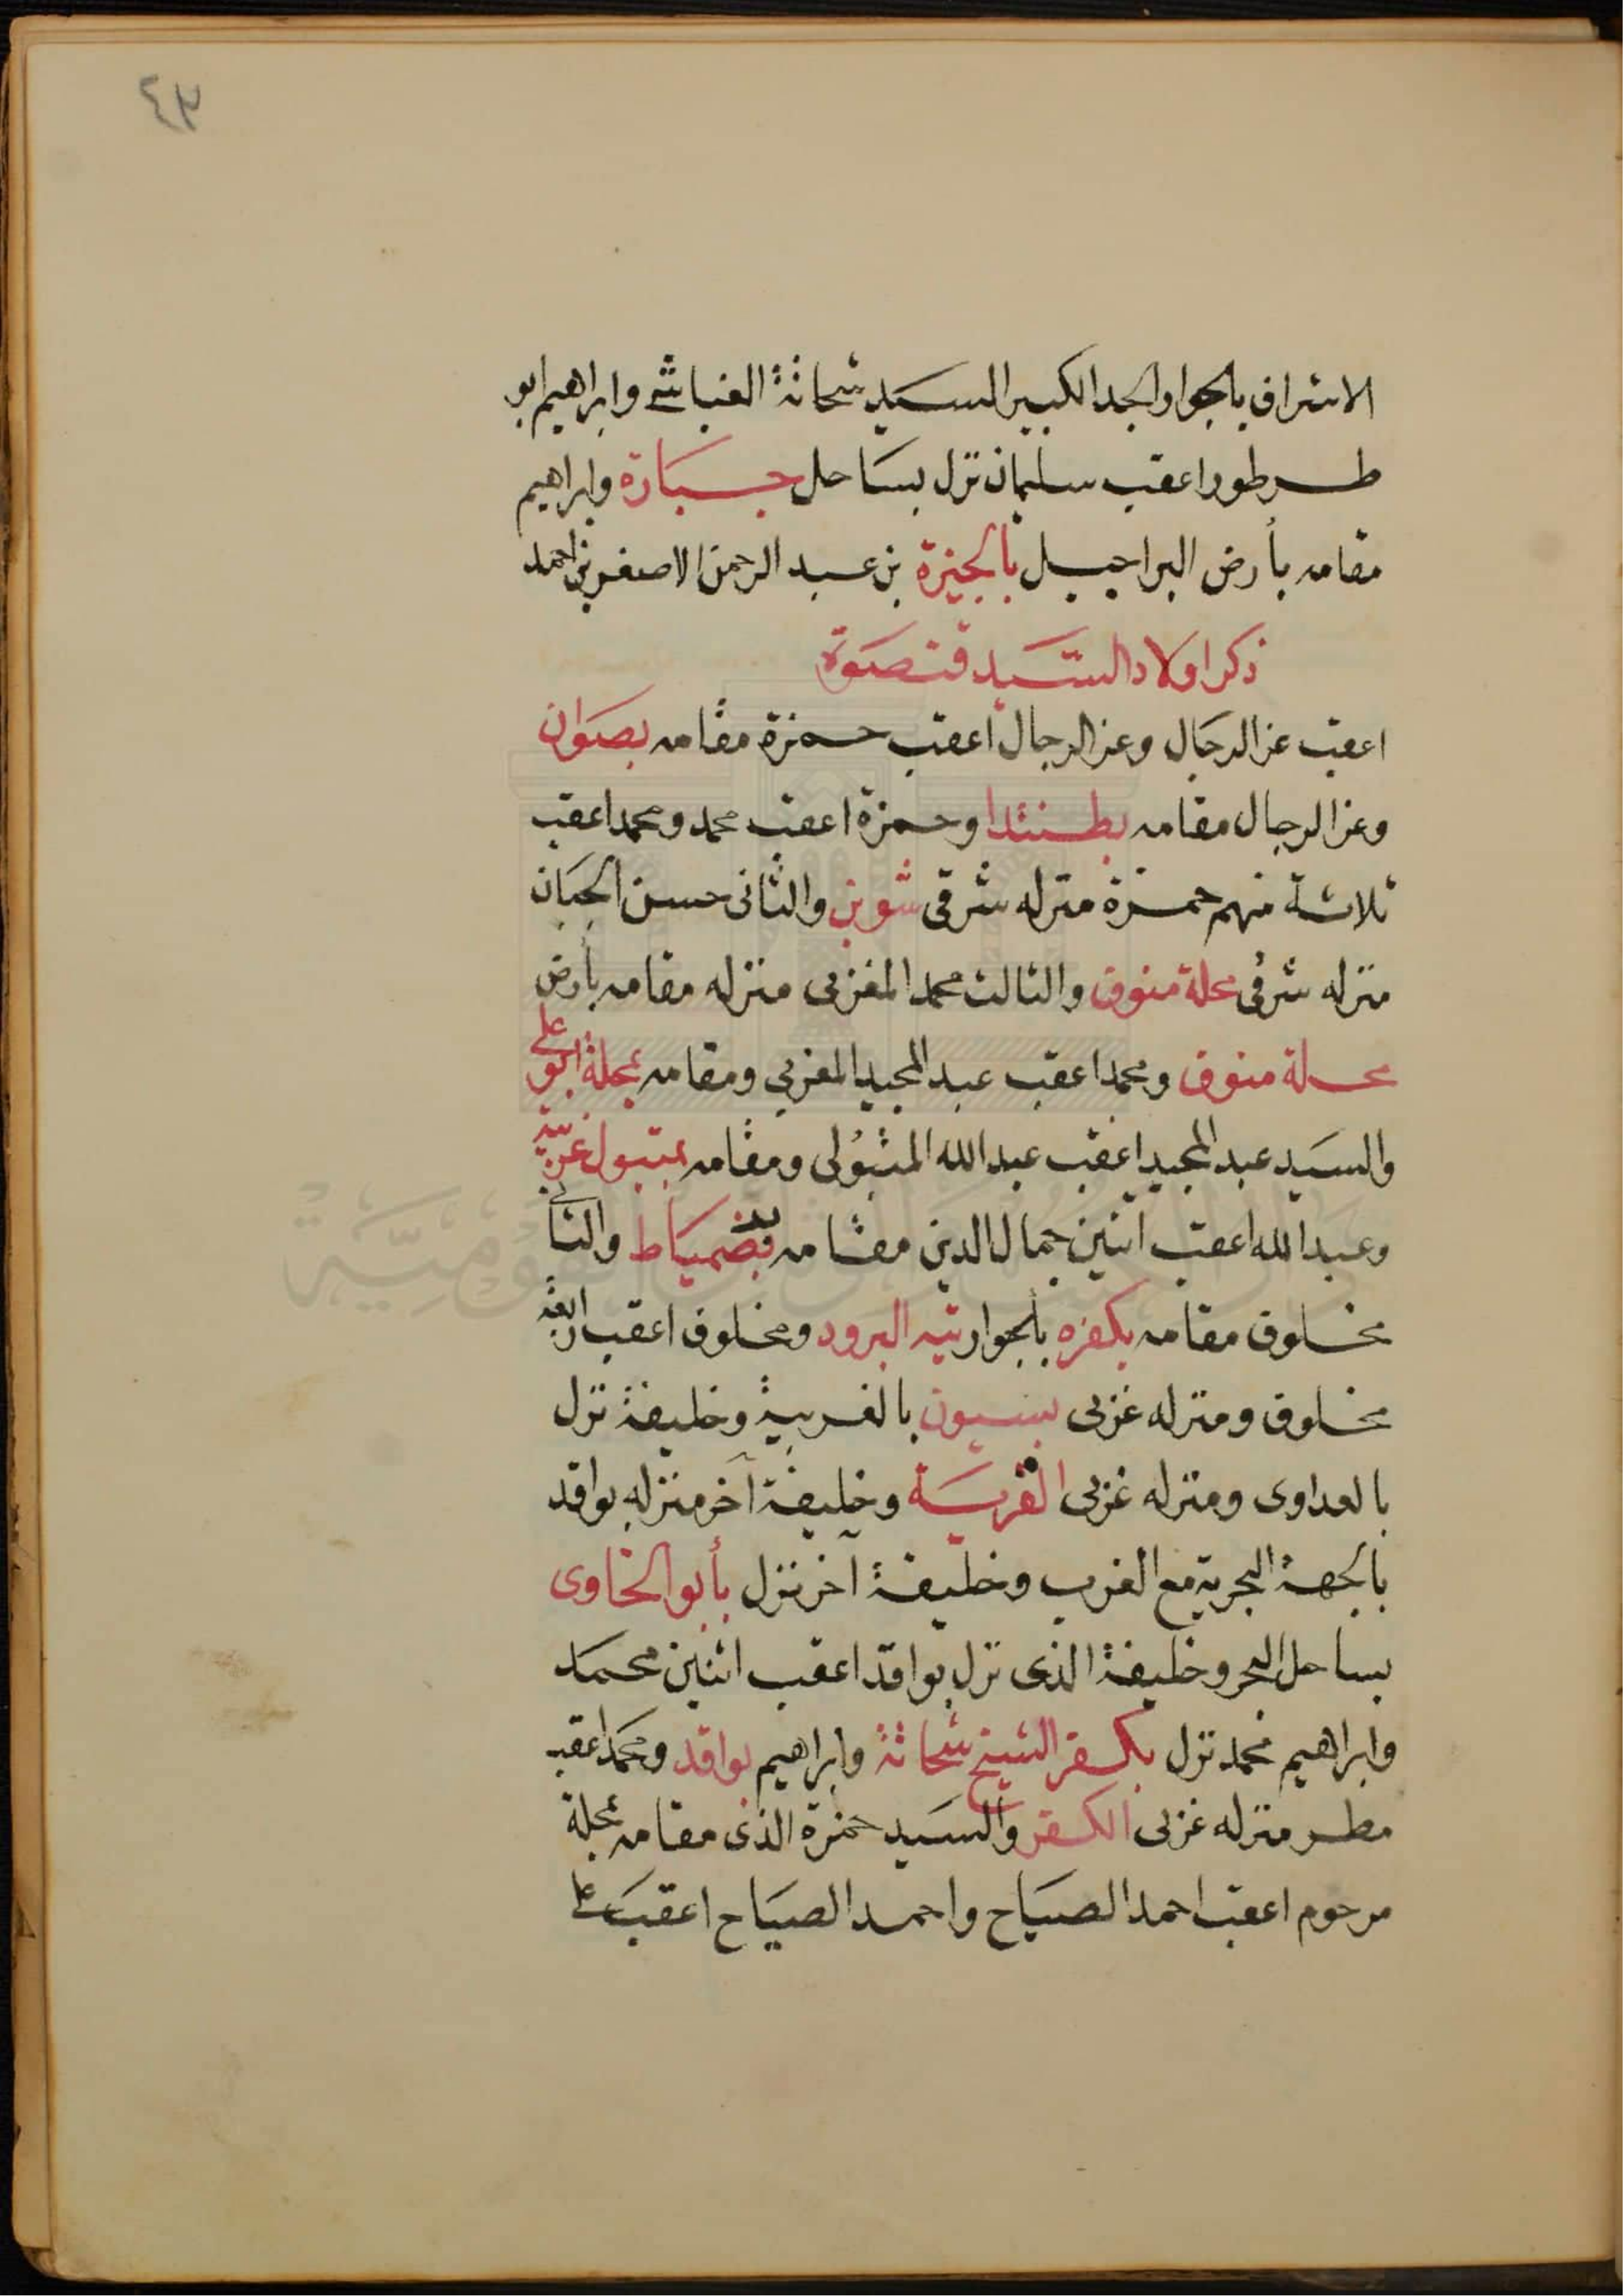 ٤٣
الاشراف بالجوار والجد الكبير السيد شحاتة الغباشى وابراهيم ابو
طرطور اعقب سليمان نزل بساحل جسبارة وابراهيم
مقامه بأرض البراجيل بالجيزة بن عبد الرحمن الاصغر بن احمد
ذكر اولاد السيد قنصوة
اعقب عز الرجال وعز الرجال اعقب حمزة مقامه بصوان
وعز الرجال مقامه بطنتدا وحمزة اعقب محمد ومحمد اعقب
ثلاثة منهم حمزة منزله شرقى شوبن والثانى حسن الجبان
منزله شرقى محلة منوف والثالث محمد المغزبى منزله مقامه بأرض
محلة منوف ومحمد اعقب عبد المجيد المغزبى ومقامه بمحلة ابو على
والسيد عبد المجيد اعقب عبد الله المتبولى ومقامه بمتبول غربية
وعبد الله اعقب اثنين جمال الدين مقامه بضمياط والثانى
مخلوف مقامه بكفره بالجوار تيه البرود ومخلوف اعقب اربعة
مخلوف ومنزله غربى بسيون بالغربية وخليفة نزل
بالعداوى ومنزله غربى القرية وخليفة آخر منزله بواقد
بالجهة البحرية مع الغرب وخليفة آخر نزل بأبو الخاوى
بساحل البحر وخليفة الذى نزل بواقد اعقب اثنين محمد
وابراهيم محمد نزل بكفر الشيخ شحاتة وابراهيم بواقد ومحمد اعقب
مطر منزله غربى الكفر والسيد حمزة الذى مقامه بمحلة
مرحوم اعقب احمد الصياح واحمد الصياح اعقب على
دار الكتب والوثائق القومية